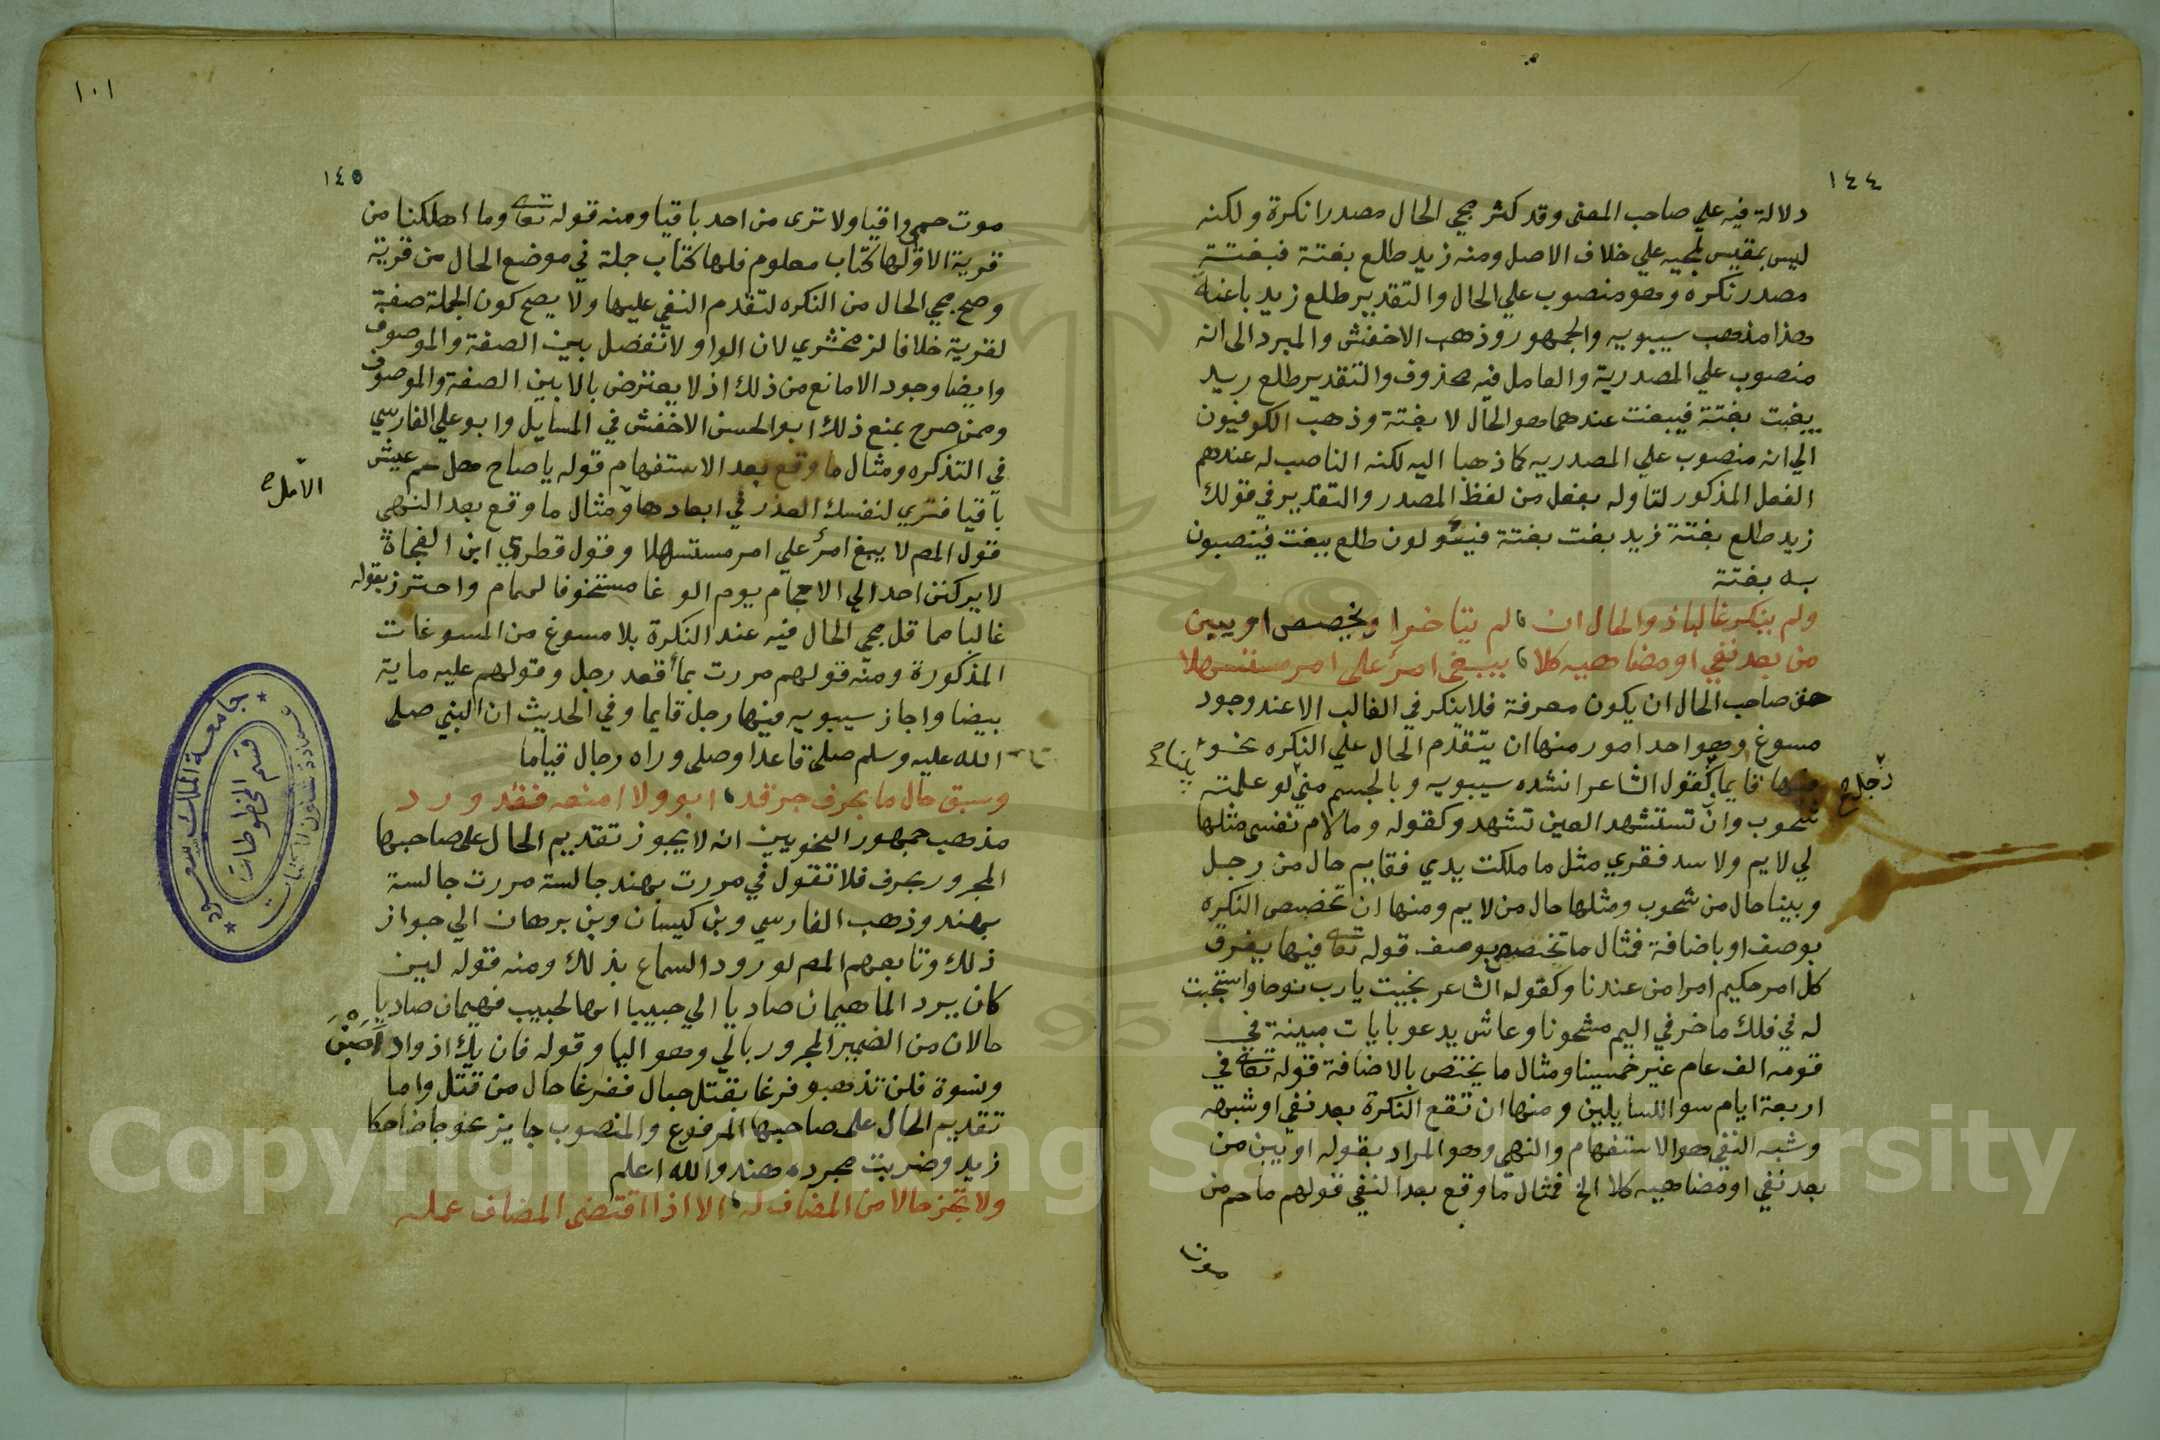 ١٤٤
دلالة فيه علي صاحب المعنى وقد كثر مجي الحال مصدرا نكرة ولكنه
ليس بمقيس لمجيه علي خلاف الاصل ومنه زيد طلع بغتة فبغتة
مصدر نكره وهو منصوب علي الحال والتقدير طلع زيد باغتا
هذا مذهب سيبويه والجمهور وذهب الاخفش والمبرد الى انه
منصوب علي المصدرية والعامل فيه محذوف والتقدير طلع زيد
يبغت بغتة فيبغت عندهما هو الحال لا بغتة وذهب الكوفيون
الي انه منصوب علي المصدريه كما ذهبا اليه لكنه الناصب له عندهم
الفعل المذكور لتاوله بفعل من لفظ المصدر والتقدير في قولك
زيد طلع بغتة زيد بغت بغتة فيئولون طلع ببغت فينصبون
به بغتة
ولم ينكر غالبا ذو الحال ان لم يتاخر او يخصص او يبين
من بعد نفي او مضاهيه كلا يبغي امرؤ على امر مستسهلا
حق صاحب الحال ان يكون معرفة فلا ينكر في الغالب الا عند وجود
مسوغ وهو احد امور منها ان يتقدم الحال علي النكره نحو
فيها قايما كقول الشاعر انشده سيبويه وبالجسم مني لو علمته
رجل ح
بينا ح
شحوب وان تستشهد العين تشهد وكقوله وما لام نفسي مثلها
لي لايم ولا سد فقري مثل ما ملكت يدي فقايم حال من رجل
وبينا حال من شحوب ومثلها حال من لايم ومنها ان تخصص النكره
بوصف او باضافة فمثال ما تخصص بوصف قوله تعالى فيها يفرق
كل امر حكيم امرا من عندنا وكقوله الشاعر نجيت يارب نوحا واستجبت
له في فلك ماخر في اليم مشحونا وعاش يدعو بايات مبينة في
قومه الف عام غير خمسينا ومثال ما يختص بالاضافة قوله تعالى في
اربعة ايام سوا للسايلين ومنها ان تقع النكرة بعد نفي او شبهه
وشبه النفي هو الاستفهام والنهي وهو المراد بقوله او يبن من
بعد نفي او مضاهيه كلا الخ فمثال ما وقع بعد النفي قولهم ما حم من
موت
١٠١
١٤٥
موت حمى واقيا ولا ترى من احد باقيا ومنه قوله تعالى وما اهلكنا من
قرية الا ولها كتاب معلوم فلها كتاب جملة في موضع الحال من قرية
وصح مجي الحال من النكره لتقدم النفي عليها ولا يصح كون الجملة صفة
لقرية خلافا لزمخشري لان الواو لا تفصل بين الصفة والموصوف
وايضا وجود الا مانع من ذلك اذ لا يعترض بالا بين الصفة والموصوف
وممن صرح بمنع ذلك ابو الحسن الاخفش في المسايل وابو علي الفارسي
في التذكره ومثال ما وقع بعد الاستفهام قوله يا صاح هل حم عيش
باقيا فتري لنفسك العذر في ابعادها ومثال ما وقع بعد النهي
الامل ح
قول المصم لا يبغ امرؤ علي امر مستسهلا وقول قطري ابن الفجاة
لا يركنن احد الي الاحجام يوم الوغا متخوفا لحمام واحترز بقوله
غالبا مما قل مجي الحال فيه عند النكرة بلا مسوغ من المسوغات
المذكورة ومنه قولهم مررت بما قعد رجل وقولهم عليه ماية
بيضا واجاز سيبويه فيها رجل قايما وفي الحديث ان النبي صلى
الله عليه وسلم صلى قاعدا وصلى وراه رجال قياما
وسبق حال ما بحرف جر قد ابو ولا امنعه فقد ورد
مذهب جمهور النحويين انه لا يجوز تقديم الحال على صاحبها
المجرور بحرف فلا تقول في مررت بهند جالسة مررت جالسة
بهند وذهب الفارسي وبن كيسان وبن برهان الي جواز
ذلك وتابعهم المصم لورود السماع بذلك ومنه قوله لين
كان برد الما هيمان صاديا الي حبيبا انها لحبيب فهيمان صاديا
حالان من الضمير المجرور بالي وهو اليا وقوله فان يك اذواد اصبن
ونسوة فلن تذهبو فرغا بقتل حبال ففرغا حال من قتل واما
تقديم الحال على صاحبها المرفوع والمنصوب جايز نحو جا ضاحكا
زيد وضربت مجرده هند والله اعلم
ولا تجز حالا من المضاف له الا اذا اقتضى المضاف عمله
جامعة الملك سعود
عمادة شئون المكتبات
قسم المخطوطات
Copyright © King Saud University